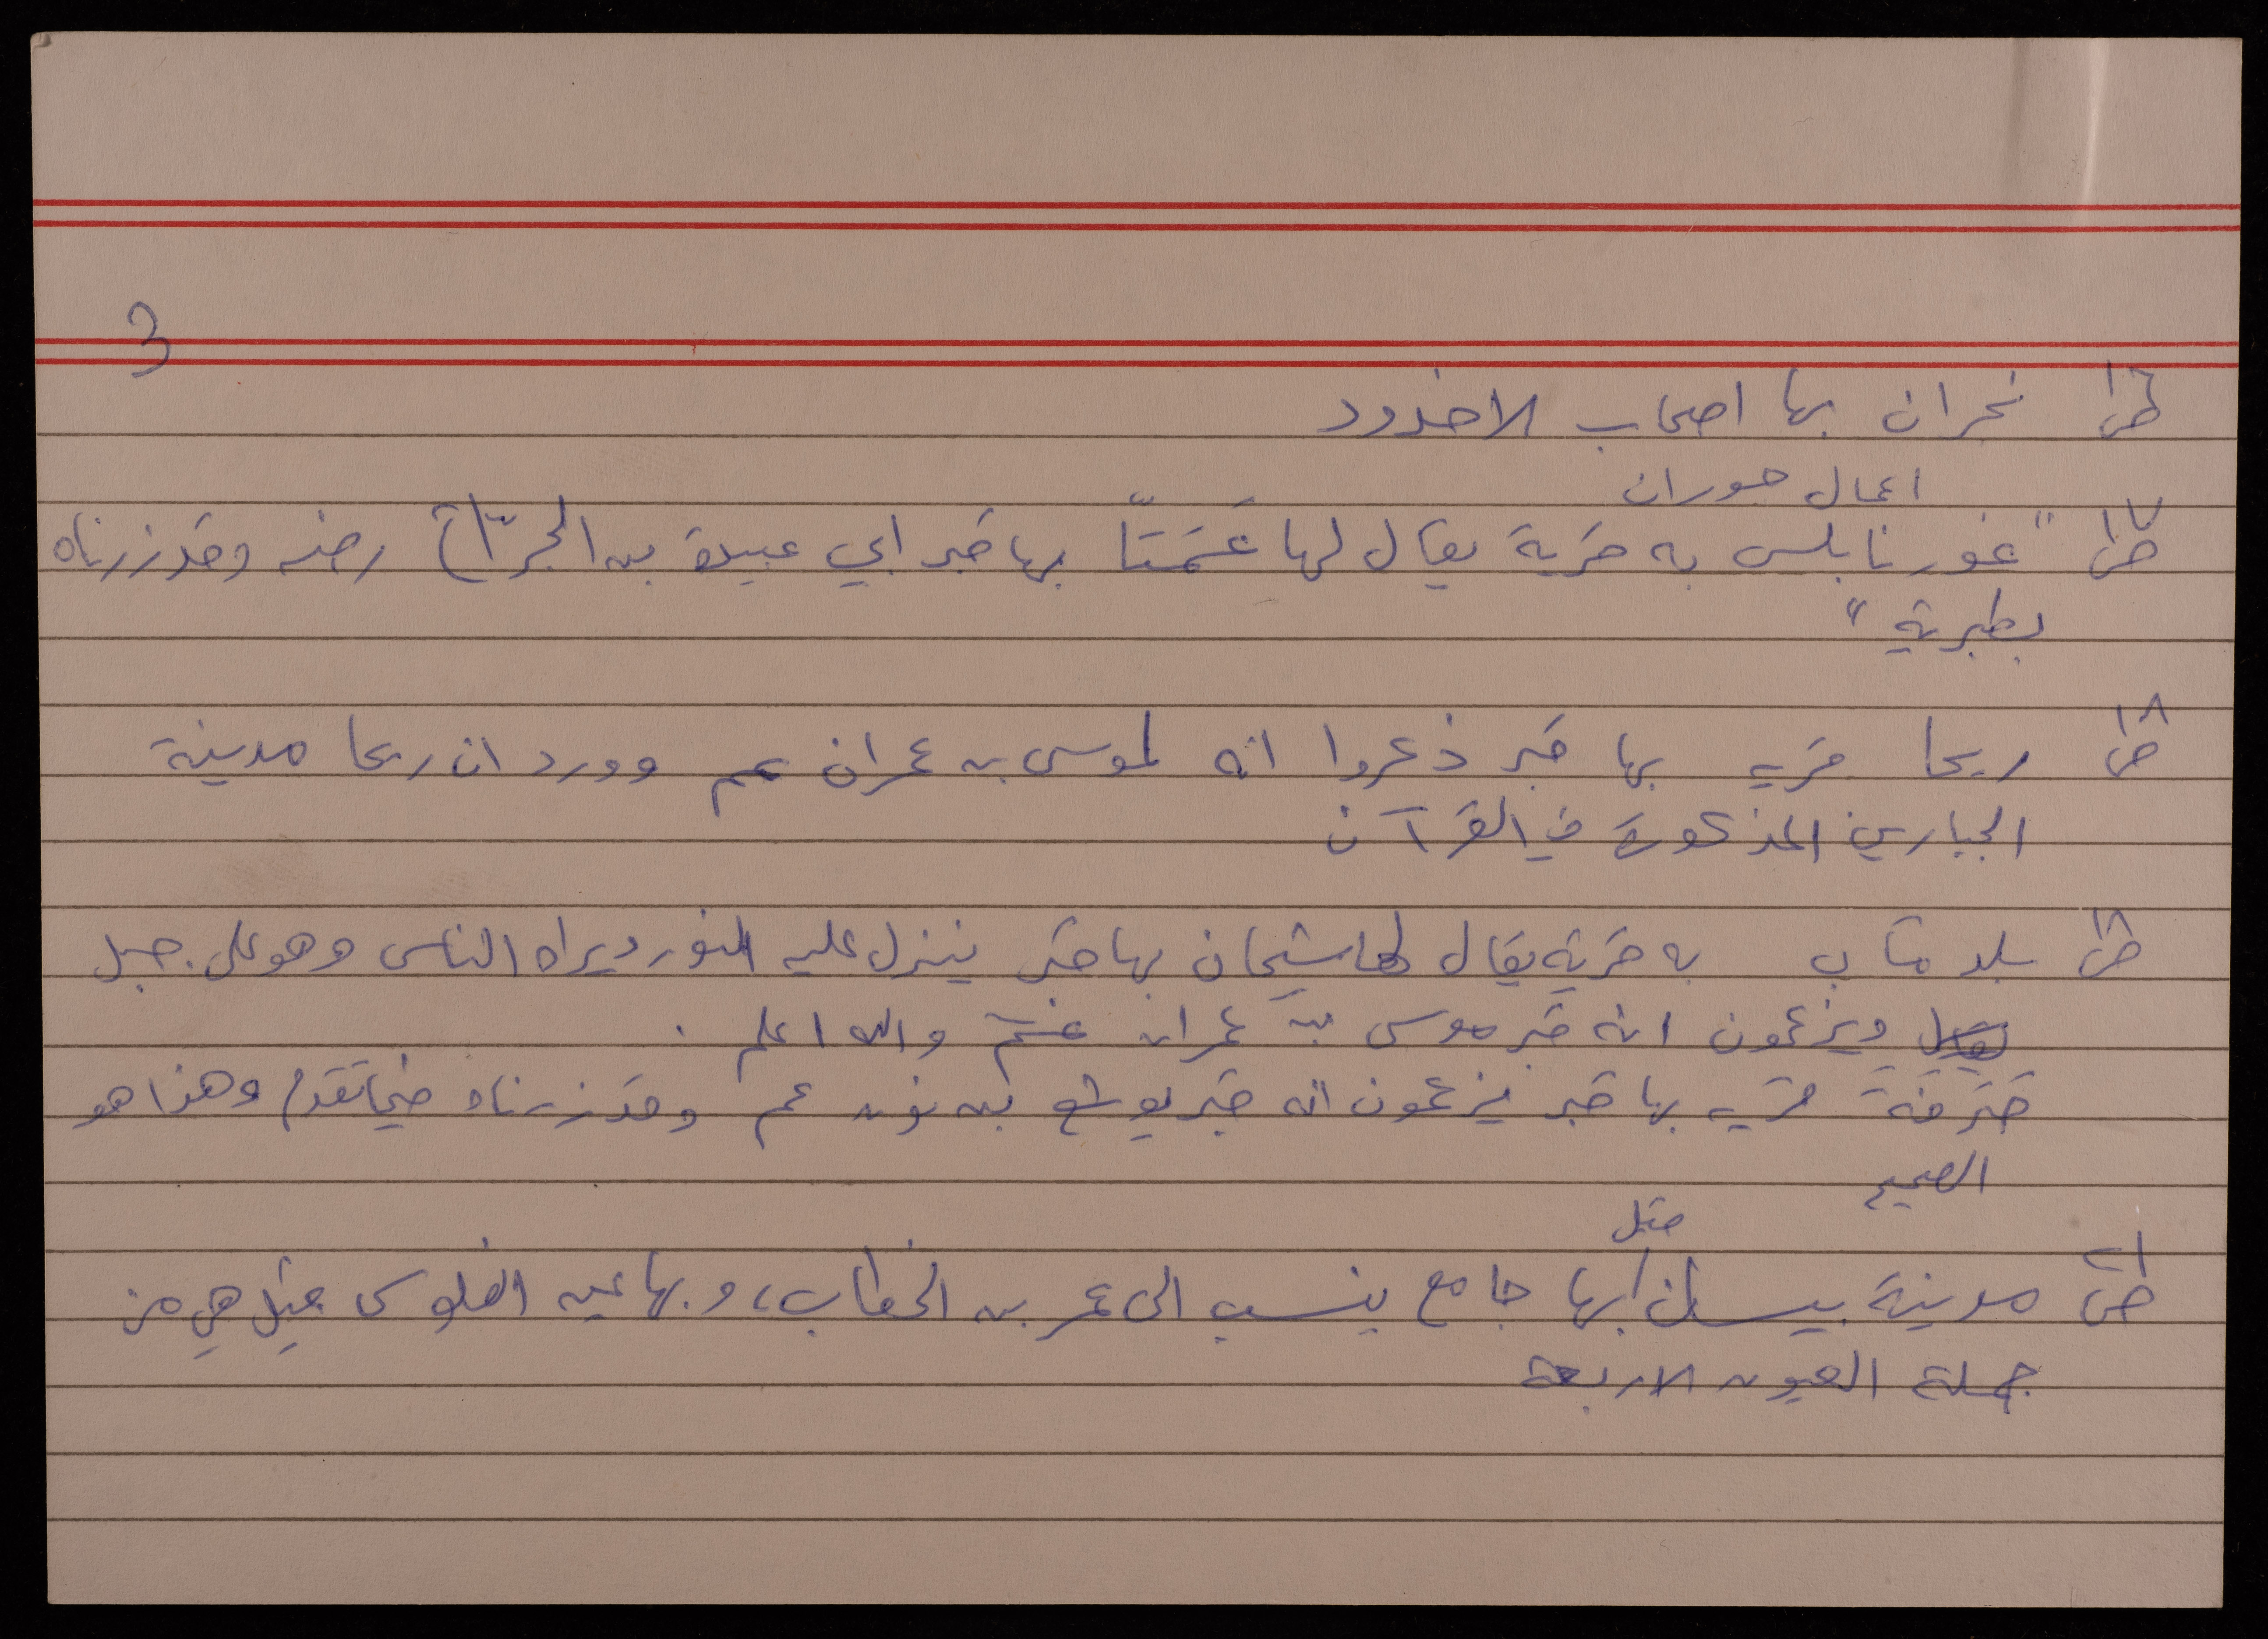 3
ص١٦ نجران بها اصحاب الاخدود
اعمال حوران
ص١٧ "غور نابلس به قرية يقال لها عَمَتَّا بها قبر ابي عبيدة بن الجرّاح رضه وقد زرناه
بطبرية"
ص١٨ ريحا قريه بها قبر ذكروا انه لموسى بن عمران عم وورد ان ريحا مدينة
الجبارين المذكورة في القرآن
ص١٨ بلد مآب به قرية يقال لها شيحان بها قبر ينزل عليه النور ويراه الناس وهو على جبل
ويزعمون انه قبر موسى بن عمران عم والله اعلم .
قرية بها قبر يزعمون انه قبر يوشع بن نون عم وقد زرناه فيما تقدم وهذا هو
الصحيح
قبل
ص٢١ مدينة بيسان بها جامع ينسب الى عمر بن الخطاب، وبها عين الفلوس قيل هي من
جملة العيون الاربعة